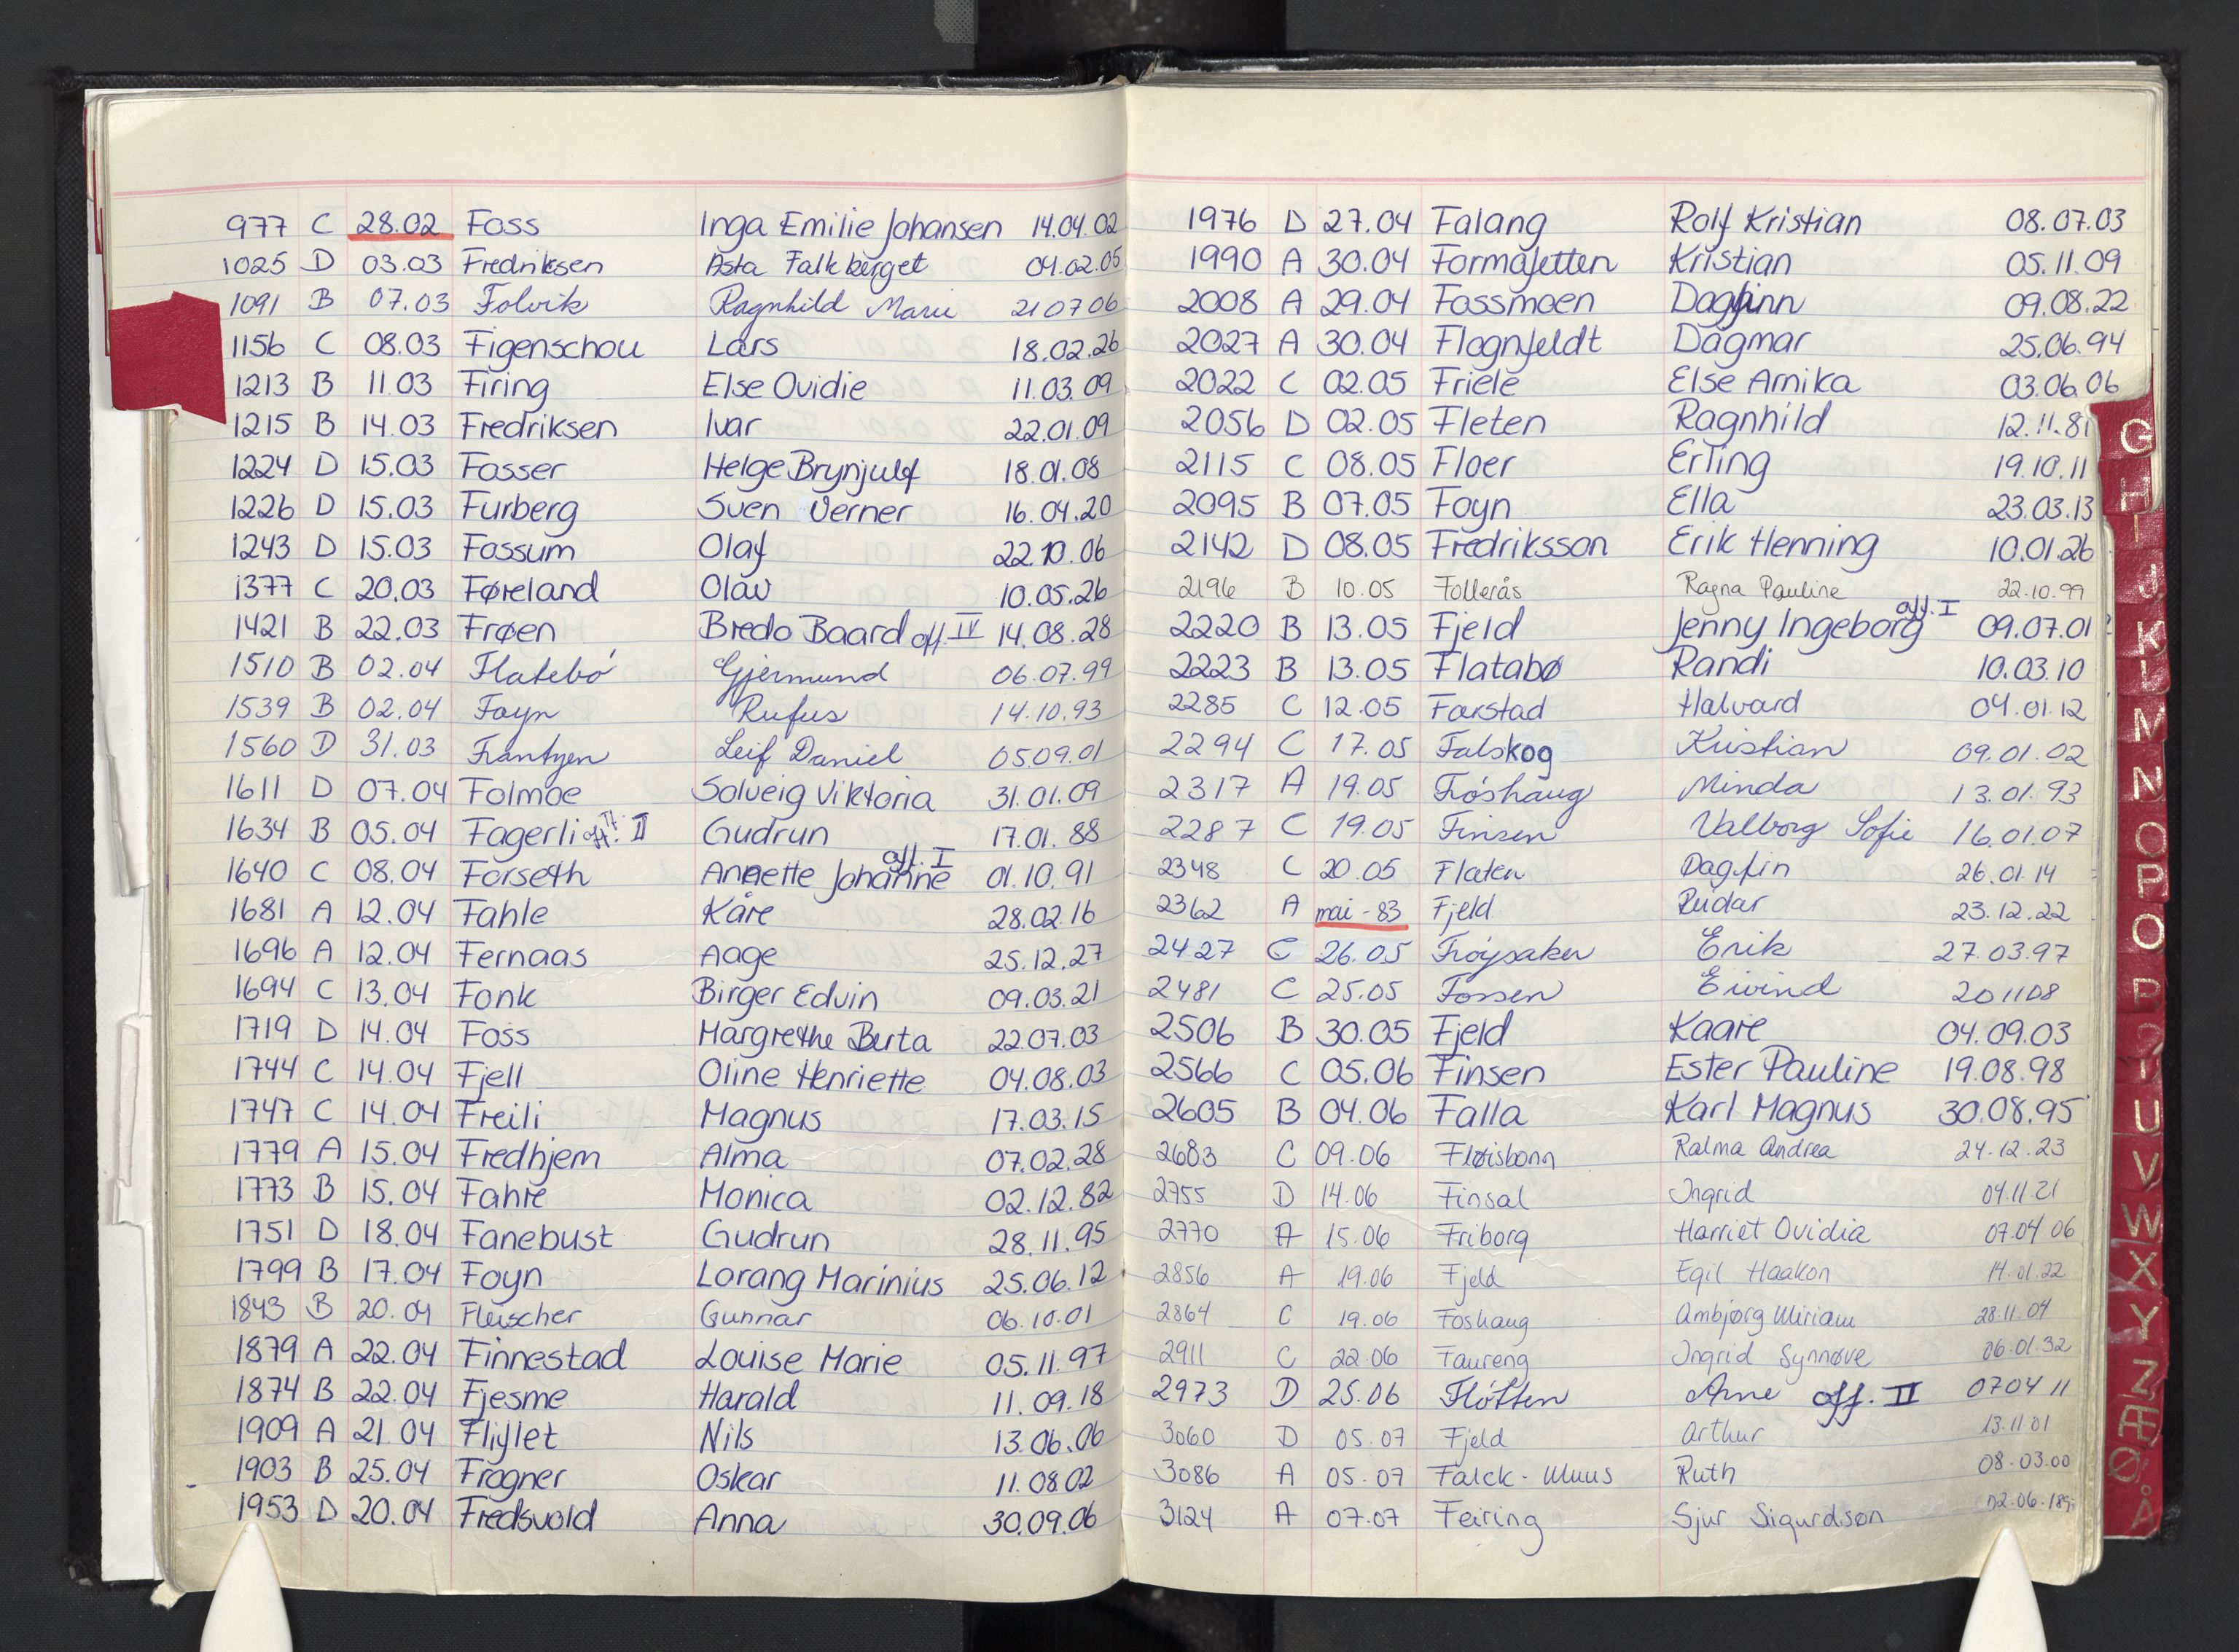 977 C 28.02 Foss Inga Emilie Johansen 14.04.02
1025 D 03.03 Fredriksen Asta Falkberget 04.02.05
1091 B 07.03 Folvik Ragnhild Marie 21 07 06
1156 C 08.03 Figenschou Lars 18.02.26
1213 B 11.03 Firing Else Ovidie 11.03.09
1215 B 14.03 Fredriksen Ivar 22.01.09
1224 D 15.03 Fosser Helge Brynjulf 18.01.08
1226 D 15.03 Furberg Sven Verner 16.04.20
1243 D 15.03 Fossum Olaf 22.10.06
1377 C 20.03 Føreland Olav 10.05.26
1421 B 22.03 Frøen Bredo Baard off. IV 14.08.28
1510 B 02.04 Flatebø Gjermund 06.07.99
1539 B 02.04 Foyn Rufus 14.10.93
1560 D 31.03 Frantzen Leif Daniel 05.09.01
1611 D 07.04 Folmoe Solveig Viktoria 31.01.09
1634 B 05.04 Fagerli off. II Gudrun 17.01.88
1640 C 08.04 Forseth Annette Johanne off. I 01.10.91
1681 A 12.04 Fahle Kåre 28.02.16
1696 A 12.04 Fernaas Aage 25.12.27
1694 C 13.04 Fonk Birger Edvin 09.03.21
1719 D 14.04 Foss Margrethe Berta 22.07.03
1744 C 14.04 Fjell Oline Henriette 04.08.03
1747 C 14.04 Freili Magnus 17.03.15
1779 A 15.04 Fredhjem Alma 07.02.28
1773 B 15.04 Fahre Monica 02.12.82
1751 D 18.04 Fanebust Gudrun 28.11.95
1799 B 17.04 Foyn Lorang Marinius 25.06.12
1843 B 20.04 Fleischer Gunnar 06.10.01
1879 A 22.04 Finnestad Louise Marie 05.11.97
1874 B 22.04 Fjesme Harald 11.09.18
1909 A 21.04 Flyflet Nils 13.06.06
1903 B 25.04 Frogner Oskar 11.08.02
1953 D 20.04 Fredsvold Anna 30.09.06
1976 D 27.04 Falang Rolf Kristian 08.07.03
1990 A 30.04 Formojetten Kristian 05.11.09
2008 A 29.04 Fossmoen Dagfinn 09.08.22
2027 A 30.04 Flognfeldt Dagmar 25.06.94
2022 C 02.05 Friele Else Arnika 03.06.06
2056 D 02.05 Fleten Ragnhild 12.11.81
2115 C 08.05 Floer Erling 19.10.11
2095 B 07.05 Foyn Ella 23.03.13
2142 D 08.05 Fredriksson Erik Henning 10.01.26
2196 B 10.05 Follerås Ragna Pauline 22.10.99
2220 B 13.05 Fjeld Jenny Ingeborg off. I 09.07.01
2223 B 13.05 Flatabø Randi 10.03.10
2285 C 12.05 Farstad Halvard 04.01.12
2294 C 17.05 Falskog Kristian 09.01.02
2317 A 19.05 Frøshaug Minda 13.01.93
2287 C 19.05 Finsen Valborg Sofie 16.01.07
2348 C 20.05 Flaten Dagfin 26.01.14
2362 A mai - 83 Fjeld Reidar 23.12.22
2427 C 26.05 Frøysaker Erik 27.03.97
2481 C 25.05 Fossen Eivind 20 11 08
2506 B 30.05 Fjeld Kaare 04.09.03
2566 C 05.06 Finsen Ester Pauline 19.08.98
2605 B 04.06 Falla Karl Magnus 30.08.95
2683 C 09.06 Fløisbonn Ralma Andrea 24.12.23
2755 D 14.06 Finsal Ingrid 04.11.21
2770 A 15.06 Friborg Harriet Ovidia 07.04 06
2856 A 19.06 Fjeld Egil Haakon 14.01.22
2864 C 19.06 Foshaug Ambjørg Miriam 28.11.04
2911 C 22.06 Faureng Ingrid Synnøve 06.01.32
2973 D 25.06 Fløtten Arne off. II 07 04 11
3060 D 05.07 Fjeld Arthur 13.11.01
3086 A 05.07 Falck-Muus Ruth 08.03.00
3124 A 07.07 Feiring Sjur Sigurdson
G
H
I
J
K
L
M
N
O
P
O
P
U
V
W
X
Y
Z
Æ
Ø
Å